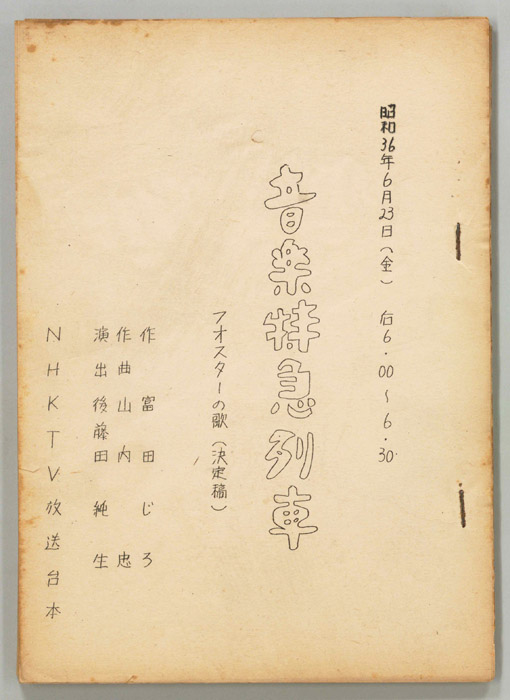 昭和36年6月23日(金) 后6・00〜6・30
音楽特急列車
フオスターの歌(決定稿)
作 富田じろ
作曲 山内忠
演出 後藤田純生
NHKTV放送台本